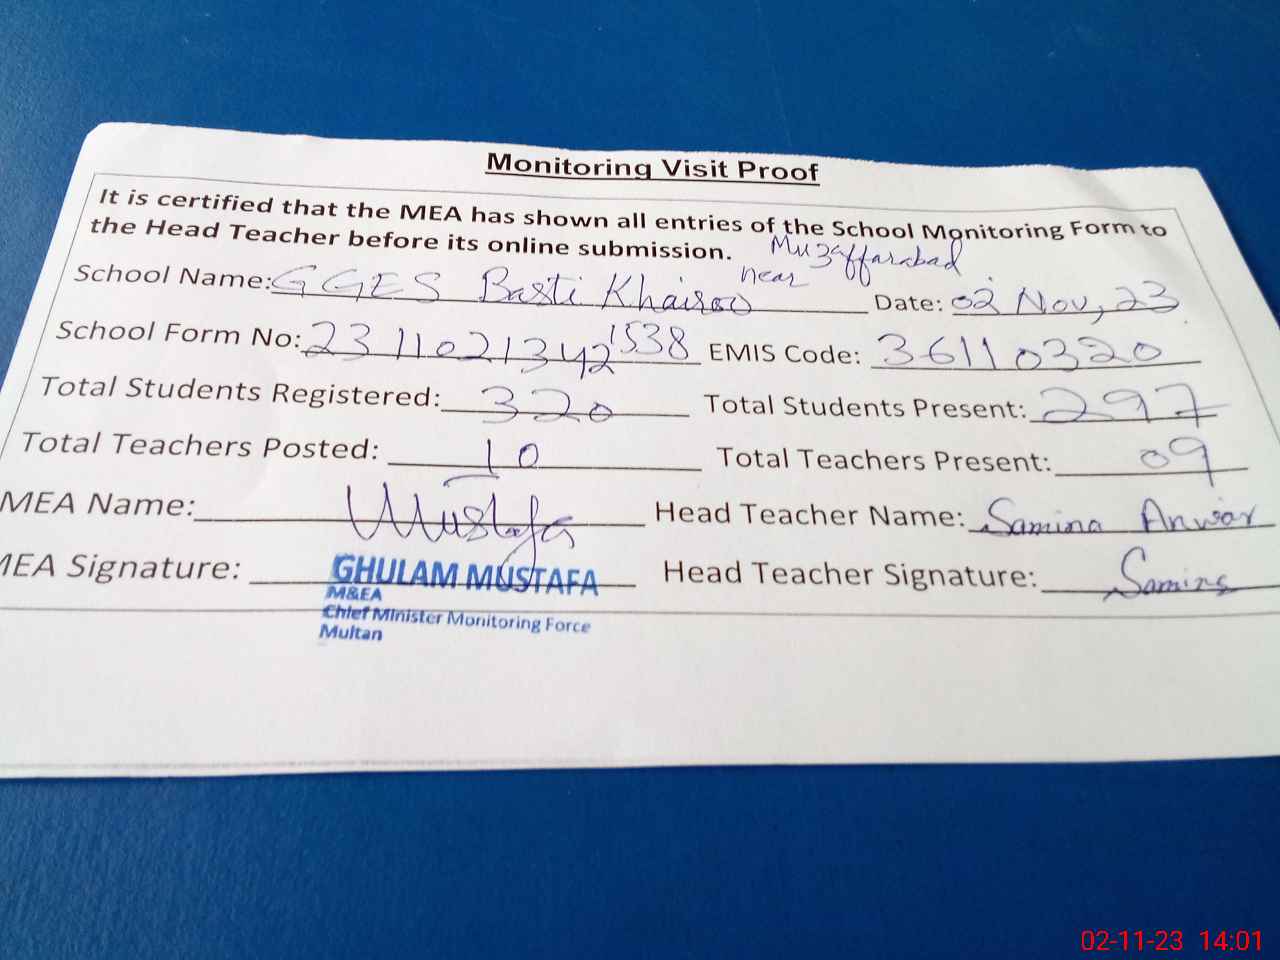 Monitoring Visit Proof
It is certified that the MEA has shown all entries of the School Monitoring Form to
the Head Teacher before its online submission.
School Name: GGES Basti Khairoo near Muzaffarabad Date: 02 Nov, 23
School Form No: 23110213421538 EMIS Code: 36110320
Total Students Registered: 320 Total Students Present: 297
Total Teachers Posted: 10 Total Teachers Present: 09
MEA Name: Mustafa Head Teacher Name: Samina Anwar
MEA Signature: Head Teacher Signature: Samina
GHULAM MUSTAFA
M&EA
Chief Minister Monitoring Force
Multan
02-11-23 14:01